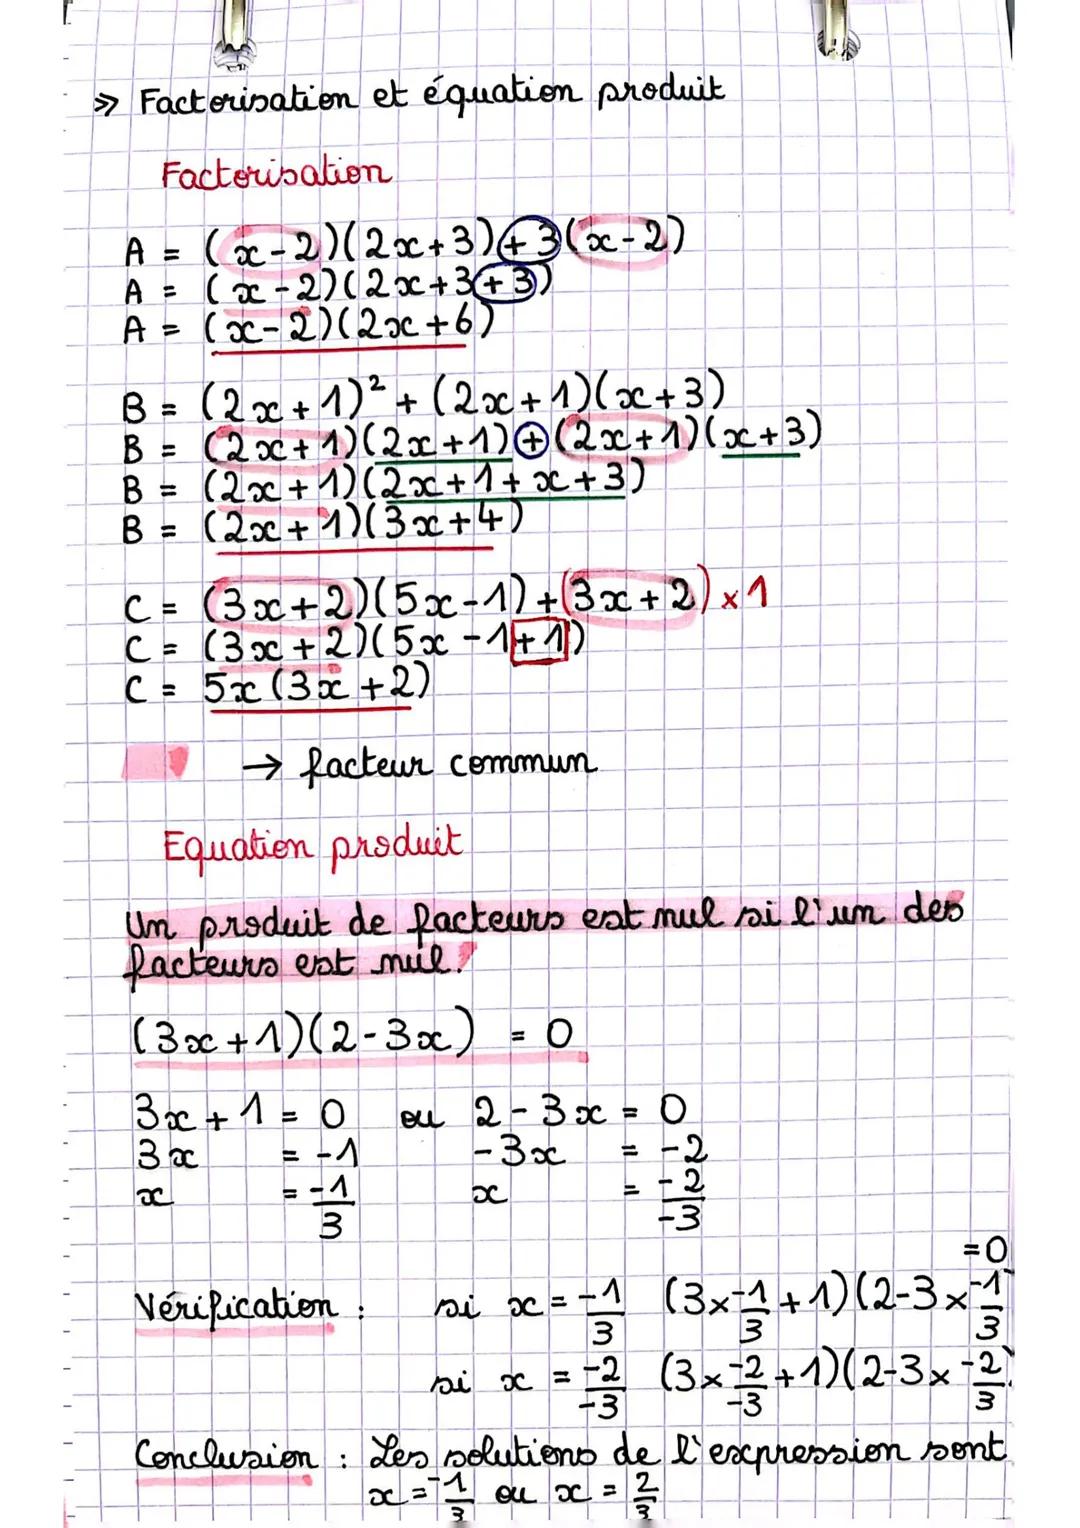 » Factorisation et équation produit
Factorisation
A = (x-2)(2x+3)+3(x-2)
A = (x-2)(2x+3+3)
A = (x-2)(2x+6)
B = (2x+1)² + (2x+1)(x+3)
B = (2x+1)(2x+1)+(2x+1)(x+3)
B = (2x+1)(2x+1+x+3)
B = (2x+1)(3x+4)
C = (3x+2)(5x-1)+(3x+2)×1
C = (3x+2)(5x-1+1)
C = 5x(3x+2)
→ facteur commun
Equation produit
Un produit de facteurs est nul si l'un des
facteurs est nul.
(3x+1)(2-3x) = 0
3x+1 = 0 ou 2-3x = 0
3x = -1 -3x = -2
x = -1/3 x = -2/-3
=0
Vérification : si x = -1/3 (3×-1/3+1)(2-3×-1/3)
si x = -2/-3 (3×-2/-3+1)(2-3×-2/3
Conclusion : Les solutions de l'expression sont
x = -1/3 ou x = 2/3